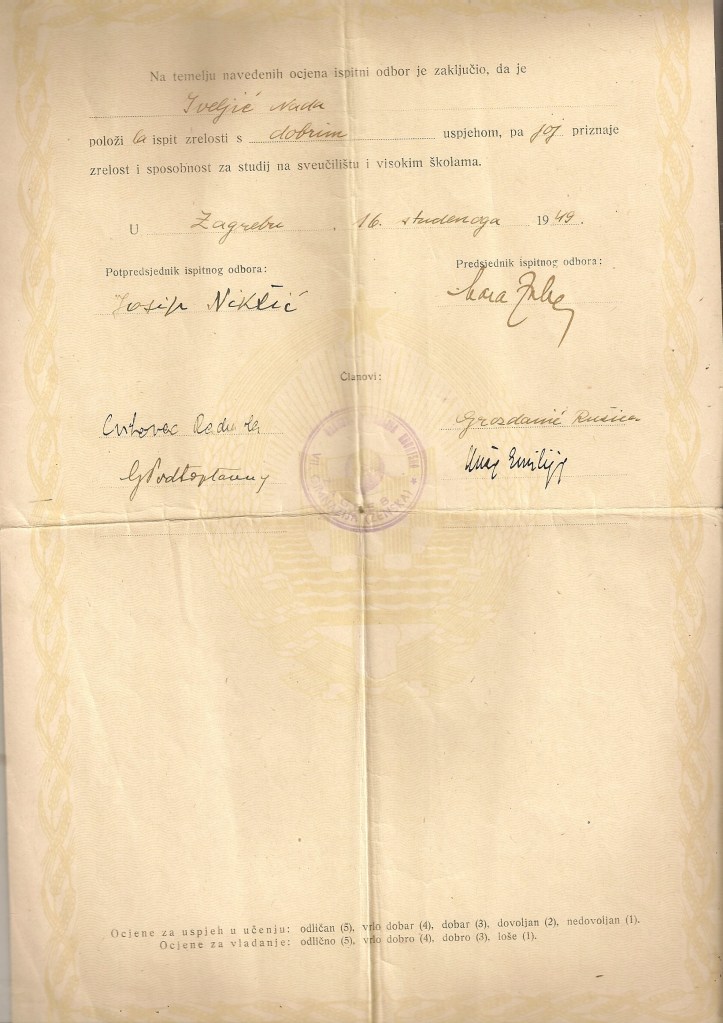 Na temelju navedenih ocjena ispitni odbor je zaključio, da je
Iveljić Nada
položi la ispit zrelosti s dobrim uspjehom, pa joj priznaje
zrelost i sposobnost za studij na sveučilištu i visokim školama.
U Zagrebu, 16. studenoga 1949.
Potpredsjednik ispitnog odbora: Predsjednik ispitnog odbora:
Josip Nikšić Mara
Članovi:
Grozdanić Ružica
Emilija
VII.
Ocjene za uspjeh u učenju: odličan (5), vrlo dobar (4), dobar (3), dovoljan (2), nedovoljan (1).
Ocjene za vladanje: odlično (5), vrlo dobro (4), dobro (3), loše (1).